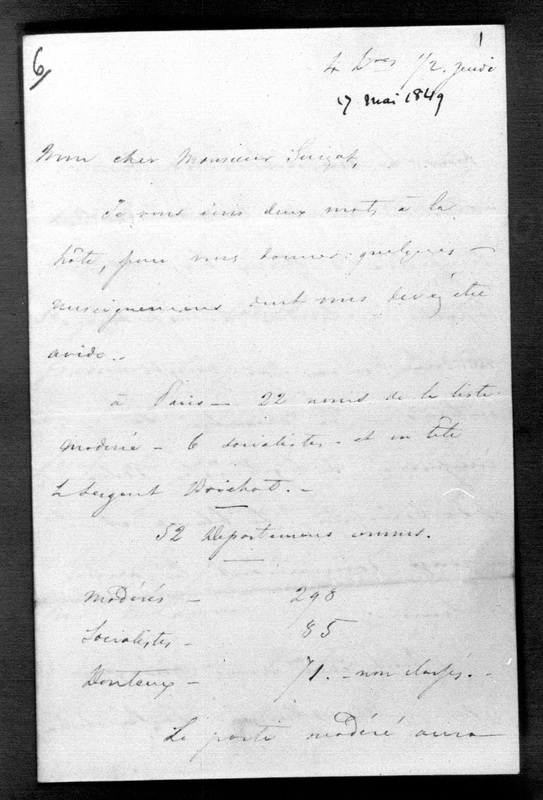 6
1
4 h^res 1/2. jeudi
17 mai 1849
Mon cher Monsieur Guizot,
Je vous écris deux mots à la
hâte, pour vous donner quelques
renseignemens dont vous devez être
avide.
à Paris — 22 noms de la liste
modérée — 6 socialistes — et en tête
le Sergent Boichot. —
52 Départemens connus.
modérés — 298
Socialistes — 85
Douteux — 71. — non classés. —
Le parti modéré aura